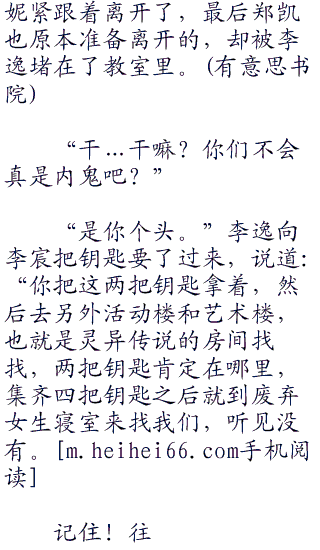 妮紧跟着离开了，最后郑凯
也原本准备离开的，却被李
逸堵在了教室里。(有意思书
院)
“干…干嘛？你们不会
真是内鬼吧？”
“是你个头。”李逸向
李宸把钥匙要了过来，说道：
“你把这两把钥匙拿着，然
后去另外活动楼和艺术楼，
也就是灵异传说的房间找
找，两把钥匙肯定在哪里，
集齐四把钥匙之后就到废弃
女生寝室来找我们，听见没
有。[m.heihei66.com手机阅
读]
记住！往